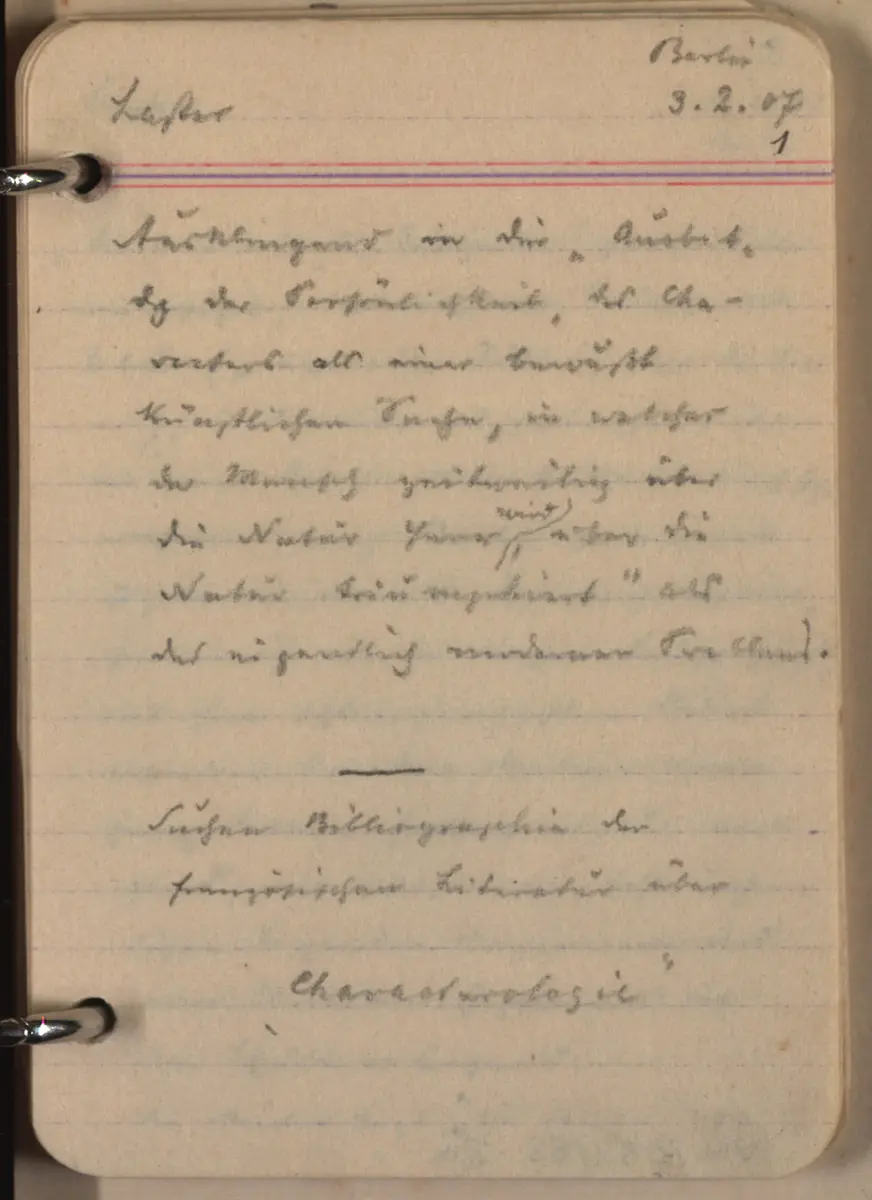 Berlin
Laster 3.2.07
1
Ausklingend in die „Ausbil-
dg der Persönlichkeit, des Cha-
racters als einer bewußt
künstlichen Sache, in welcher
der Mensch zeitweilig über
die Natur Herr wird, über die
Natur triumphiert" als
des eigendlich modernen Problems.
Suchen Bibliographie der
französischen Literatur über
Characterologie"